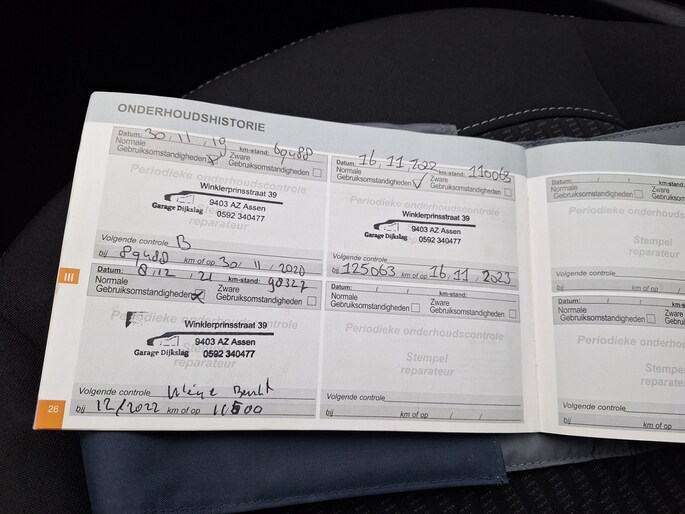 ONDERHOUDSHISTORIE
Datum: 30, 11, 19 km-stand: 69488
Normale Gebruiksomstandigheden Zware Gebruiksomstandigheden
Periodieke onderhoudscontrole
Winklerprinsstraat 39
9403 AZ Assen
Garage Dijkslag 0592 340477
reparateur
Volgende controle B
bij 89488 km of op 30, 11, 2020
III
Datum: 8, 12, 21 km-stand: 98327
Normale Gebruiksomstandigheden Zware Gebruiksomstandigheden
Periodieke onderhoudscontrole
Winklerprinsstraat 39
9403 AZ Assen
Garage Dijkslag 0592 340477
reparateur
Volgende controle
bij 12/2022 km of op
26
Datum: 16, 11, 2022 km-stand: 110063
Normale Gebruiksomstandigheden Zware Gebruiksomstandigheden
Periodieke onderhoudscontrole
Winklerprinsstraat 39
9403 AZ Assen
Garage Dijkslag 0592 340477
Volgende controle
bij 125063 km of op 16, 11, 2023
Datum: / / km-stand:
Normale Gebruiksomstandigheden Zware Gebruiksomstandigheden
Periodieke onderhoudscontrole
Stempel
reparateur
Volgende controle
bij km of op / /
Datum: / / km-stand:
Normale Gebruiksomstandigheden Zware
Periodieke onderhoudscon
Stempel
reparateur
Volgende controle
bij km of op /
Datum: / / km-stand:
Normale Gebruiksomstandigheden Zware
Periodieke onderhoud
Stempel
reparateur
Volgende controle
bij km of op